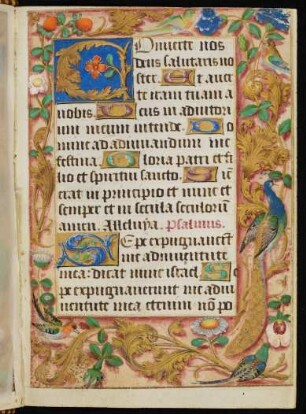 Converte nos
deus salutaris no
ster. Et auer
te iram tuam a
nobis. Deus in adiutori
um meum intende. Do
mine ad adiuuandum me
festina. Gloria patri et fi
lio et spiritui sancto. Si
cut erat in principio et nunc et
semper et in secula seculorum
amen. Alleluya. Psalmus.
Sepe expugnauerunt
me a iuuentute
mea: dicat nunc israel. Se
pe expugnauerunt me a iu
uentute mea etenim non po